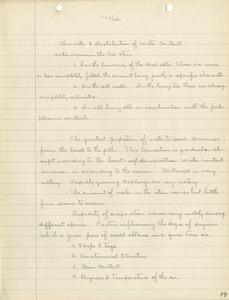 Character & distribution of Water Content.
Water occurs in the tree stem
1. In the lumina of the dead cells. These are more
or less completely filled, the amount being partly a specific character.
2. In the cell walls. In the living tree these are always
completely saturated.
3. In all living cells in combination with the proto-
plasmic contents.
The greatest proportion of water to wood decreases
from the heart to the pith. This variation is gradual or
abrupt according to the heart-sapdemarcation. Water content
increases in ascending to the crown.
watery. Rapidly growing saplings are very watery.
The amount of water in the stem varies but little
from season to season.
Rapidity of evaporation varies very widely among
different species. Factors influencing the degree of dryness
which a given piece of wood attains in a given time are
1. Shape & Size
2. Anatomical Structure
3. Resin Content
4. Dryness & Temperature of the air.
19